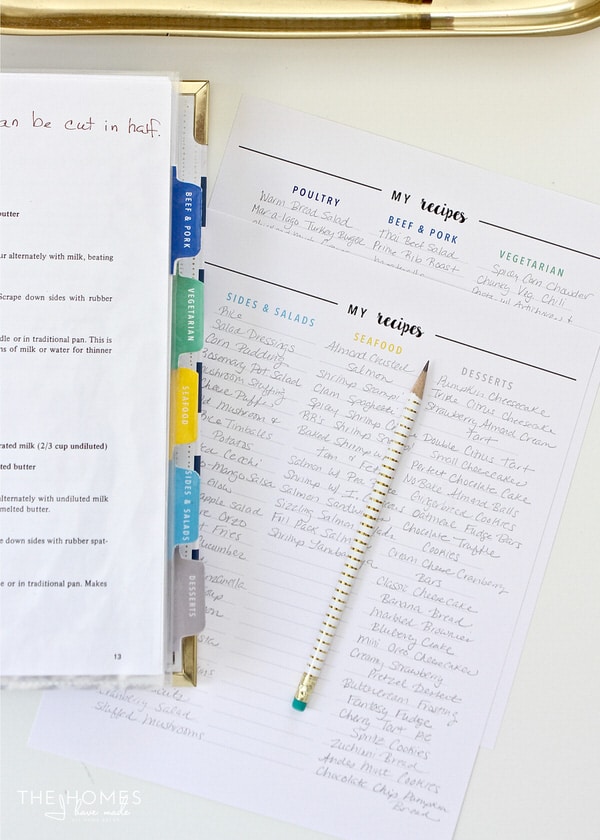 an be cut in half.
utter
ur alternately with milk, beating
Scrape down sides with rubber
dle or in traditional pan. This is
ns of milk or water for thinner
rated milk (2/3 cup undiluted)
ted butter
alternately with undiluted milk
melted butter.
e down sides with rubber spat-
e or in traditional pan. Makes
13
BEEF & PORK
VEGETARIAN
SEAFOOD
SIDES & SALADS
DESSERTS
MY recipes
POULTRY
Warm Bread Salad
Mar-a-lago Turkey Burger
BEEF & PORK
Thai Beef Salad
Prime Rib Roast
VEGETARIAN
Spicy Corn Chowder
Chunky Veg. Chili
MY recipes
SIDES & SALADS
Rice
Salad Dressings
Corn Pudding
Rosemary Pot. Salad
Mushroom Stuffing
Cheese Puff
Mushroom &
Rice Timbales
Potatoes
Mango Salsa
Slaw
apple salad
Orzo
Fries
Cucumber
Panzanella
Cranberry Salad
Stuffed Mushrooms
SEAFOOD
Almond Crusted
Salmon
Shrimp Scampi
Clam Spaghetti
Spicy Shrimp
BBQ Shrimp
Baked Shrimp w/
Tom & Feta
Salmon w/
Shrimp w/
Salmon
Sizzling Salmon
Foil Pack Salmon
Shrimp
DESSERTS
Pumpkin Cheesecake
Triple Citrus Cheesecake
Strawberry Almond Cream
Tart
Double Citrus Tart
Small Cheesecakes
Perfect Chocolate Cake
No-Bake Almond Balls
Gingerbread Cookies
Oatmeal Fudge Bars
Chocolate Truffle
Cookies
Cream Cheese Cranberry
Bars
Classic Cheesecake
Banana Bread
Marbled Brownies
Blueberry Cake
Mini Oreo Cheesecakes
Creamy Strawberry
Pretzel Dessert
Buttercream Frosting
Fantasy Fudge
Cherry Tart Pie
Spritz Cookies
Zucchini Bread
Andes Mint Cookies
Chocolate Chip Pumpkin
Bread
THE HOMES
I have made